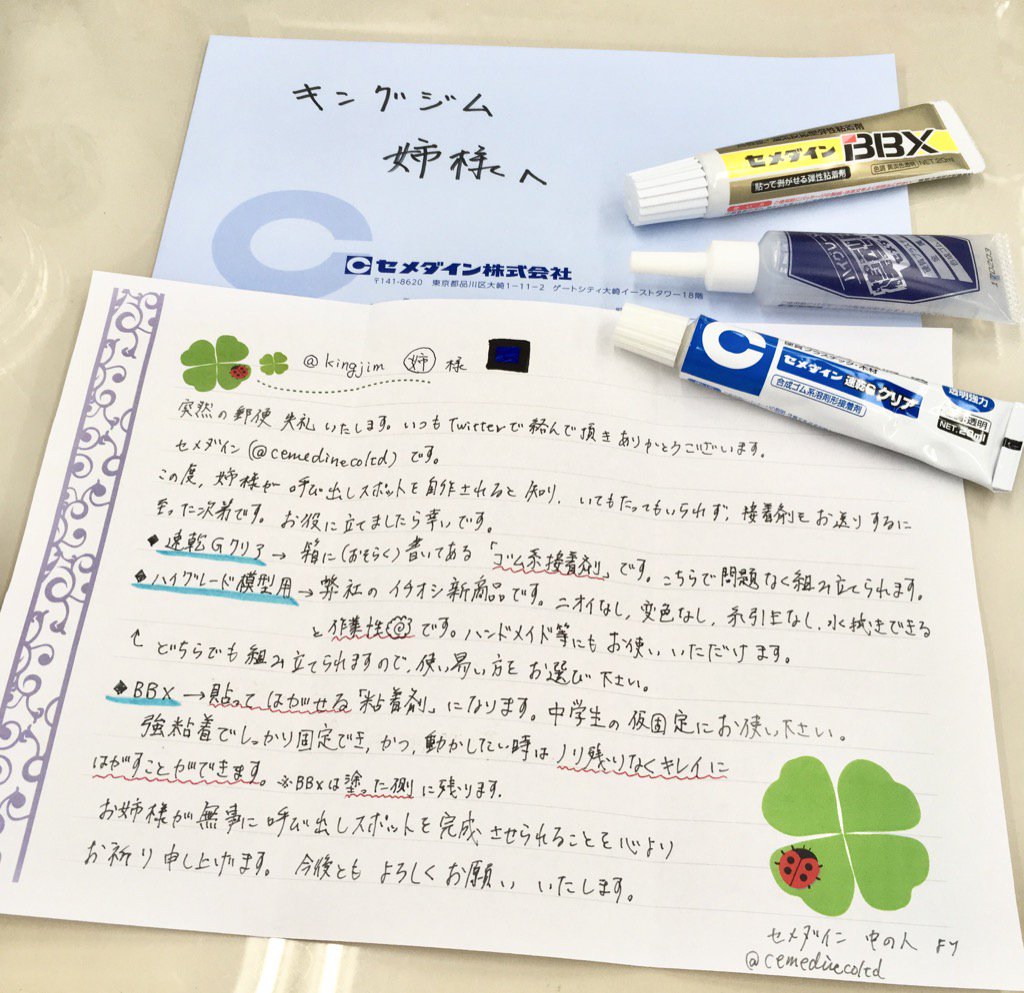 キングジム
姉様へ
セメダイン株式会社
〒141-8620 東京都品川区大崎1-11-2 ゲートシティ大崎イーストタワー18階
セメダイン BBX
貼って剥がせる弾性粘着剤
NET.20ml
C
セメダイン 速乾Gクリア
合成ゴム系溶剤形接着剤
透明強力
NET.20ml
@kingjim 姉 様
突然の郵便 失礼いたします。いつもTwitterで絡んで頂きありがとうございます。
セメダイン(@cemedinecoltd)です。
この度、姉様が呼び出しスポットを自作されると知り、いてもたってもいられず、接着剤をお送りするに
至った次第です。お役に立てましたら幸いです。
◆速乾Gクリア→箱に(おそらく)書いてある「ゴム系接着剤」です。こちらで問題なく組み立てられます。
◆ハイグレード模型用→弊社のイチオシ新商品です。ニオイなし、変色なし、糸引きなし、水拭きできる
と作業性◎です。ハンドメイド等にもお使いいただけます。
↑どちらでも組み立てられますので、使い易い方をお選び下さい。
◆BBX→貼ってはがせる「粘着剤」になります。中学生の仮固定にお使い下さい。
強粘着でしっかり固定でき、かつ、動かしたい時はノリ残りなくキレイに
はがすことができます。※BBXは塗った側に残ります。
お姉様が無事に呼び出しスポットを完成させられることを心より
お祈り申し上げます。今後ともよろしくお願いいたします。
セメダイン 中の人 より
@cemedinecoltd